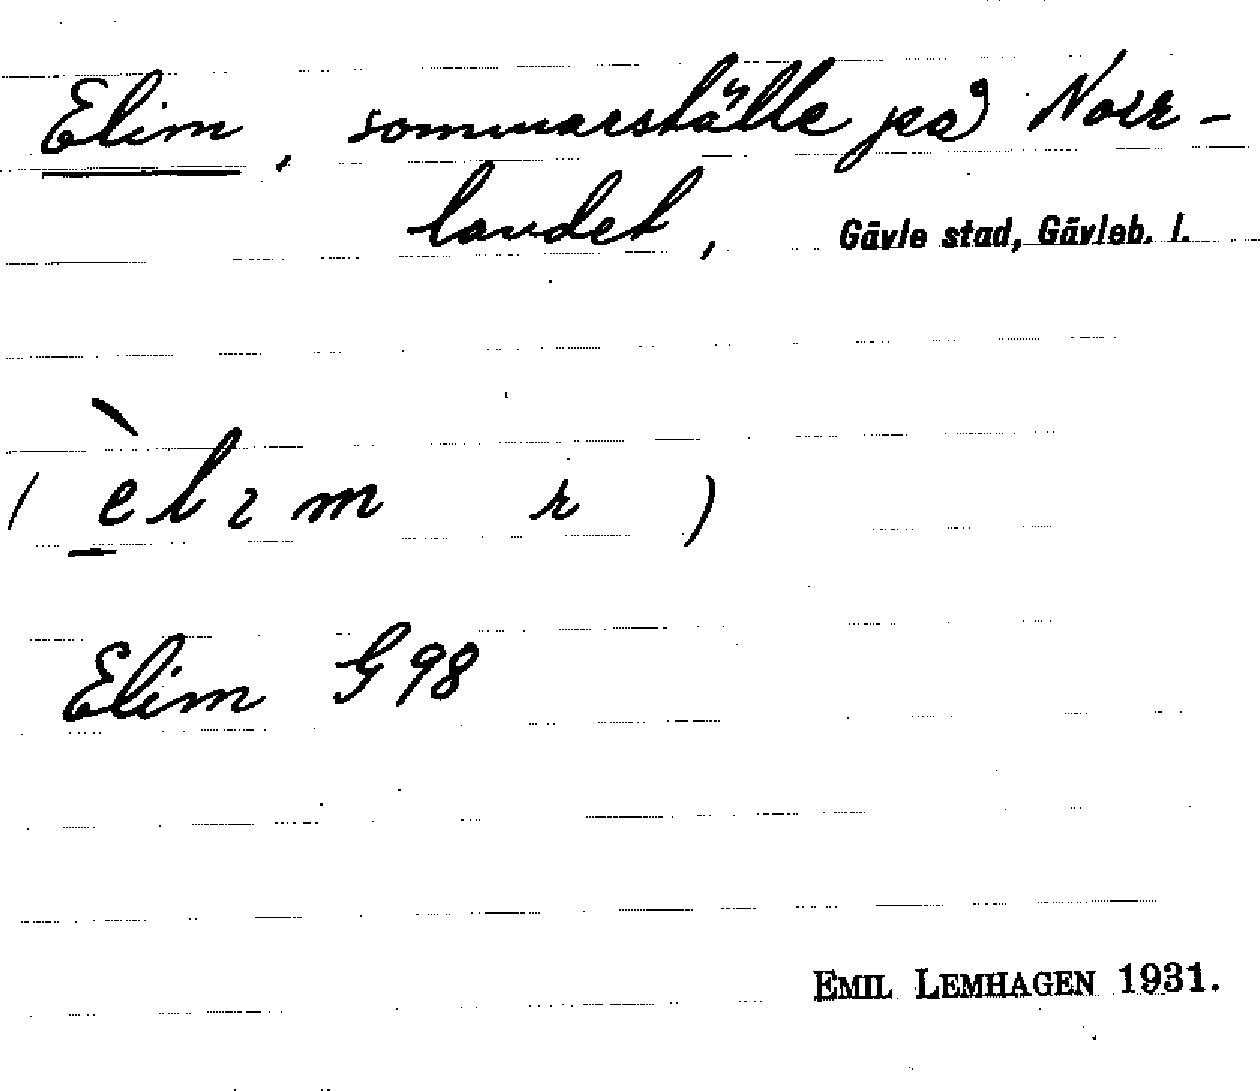 Elim, sommarställe på Norr-
landet, Gävle stad, Gävleb. l.
( è̱lım r )
Elim G98
EMIL LEMHAGEN 1931.